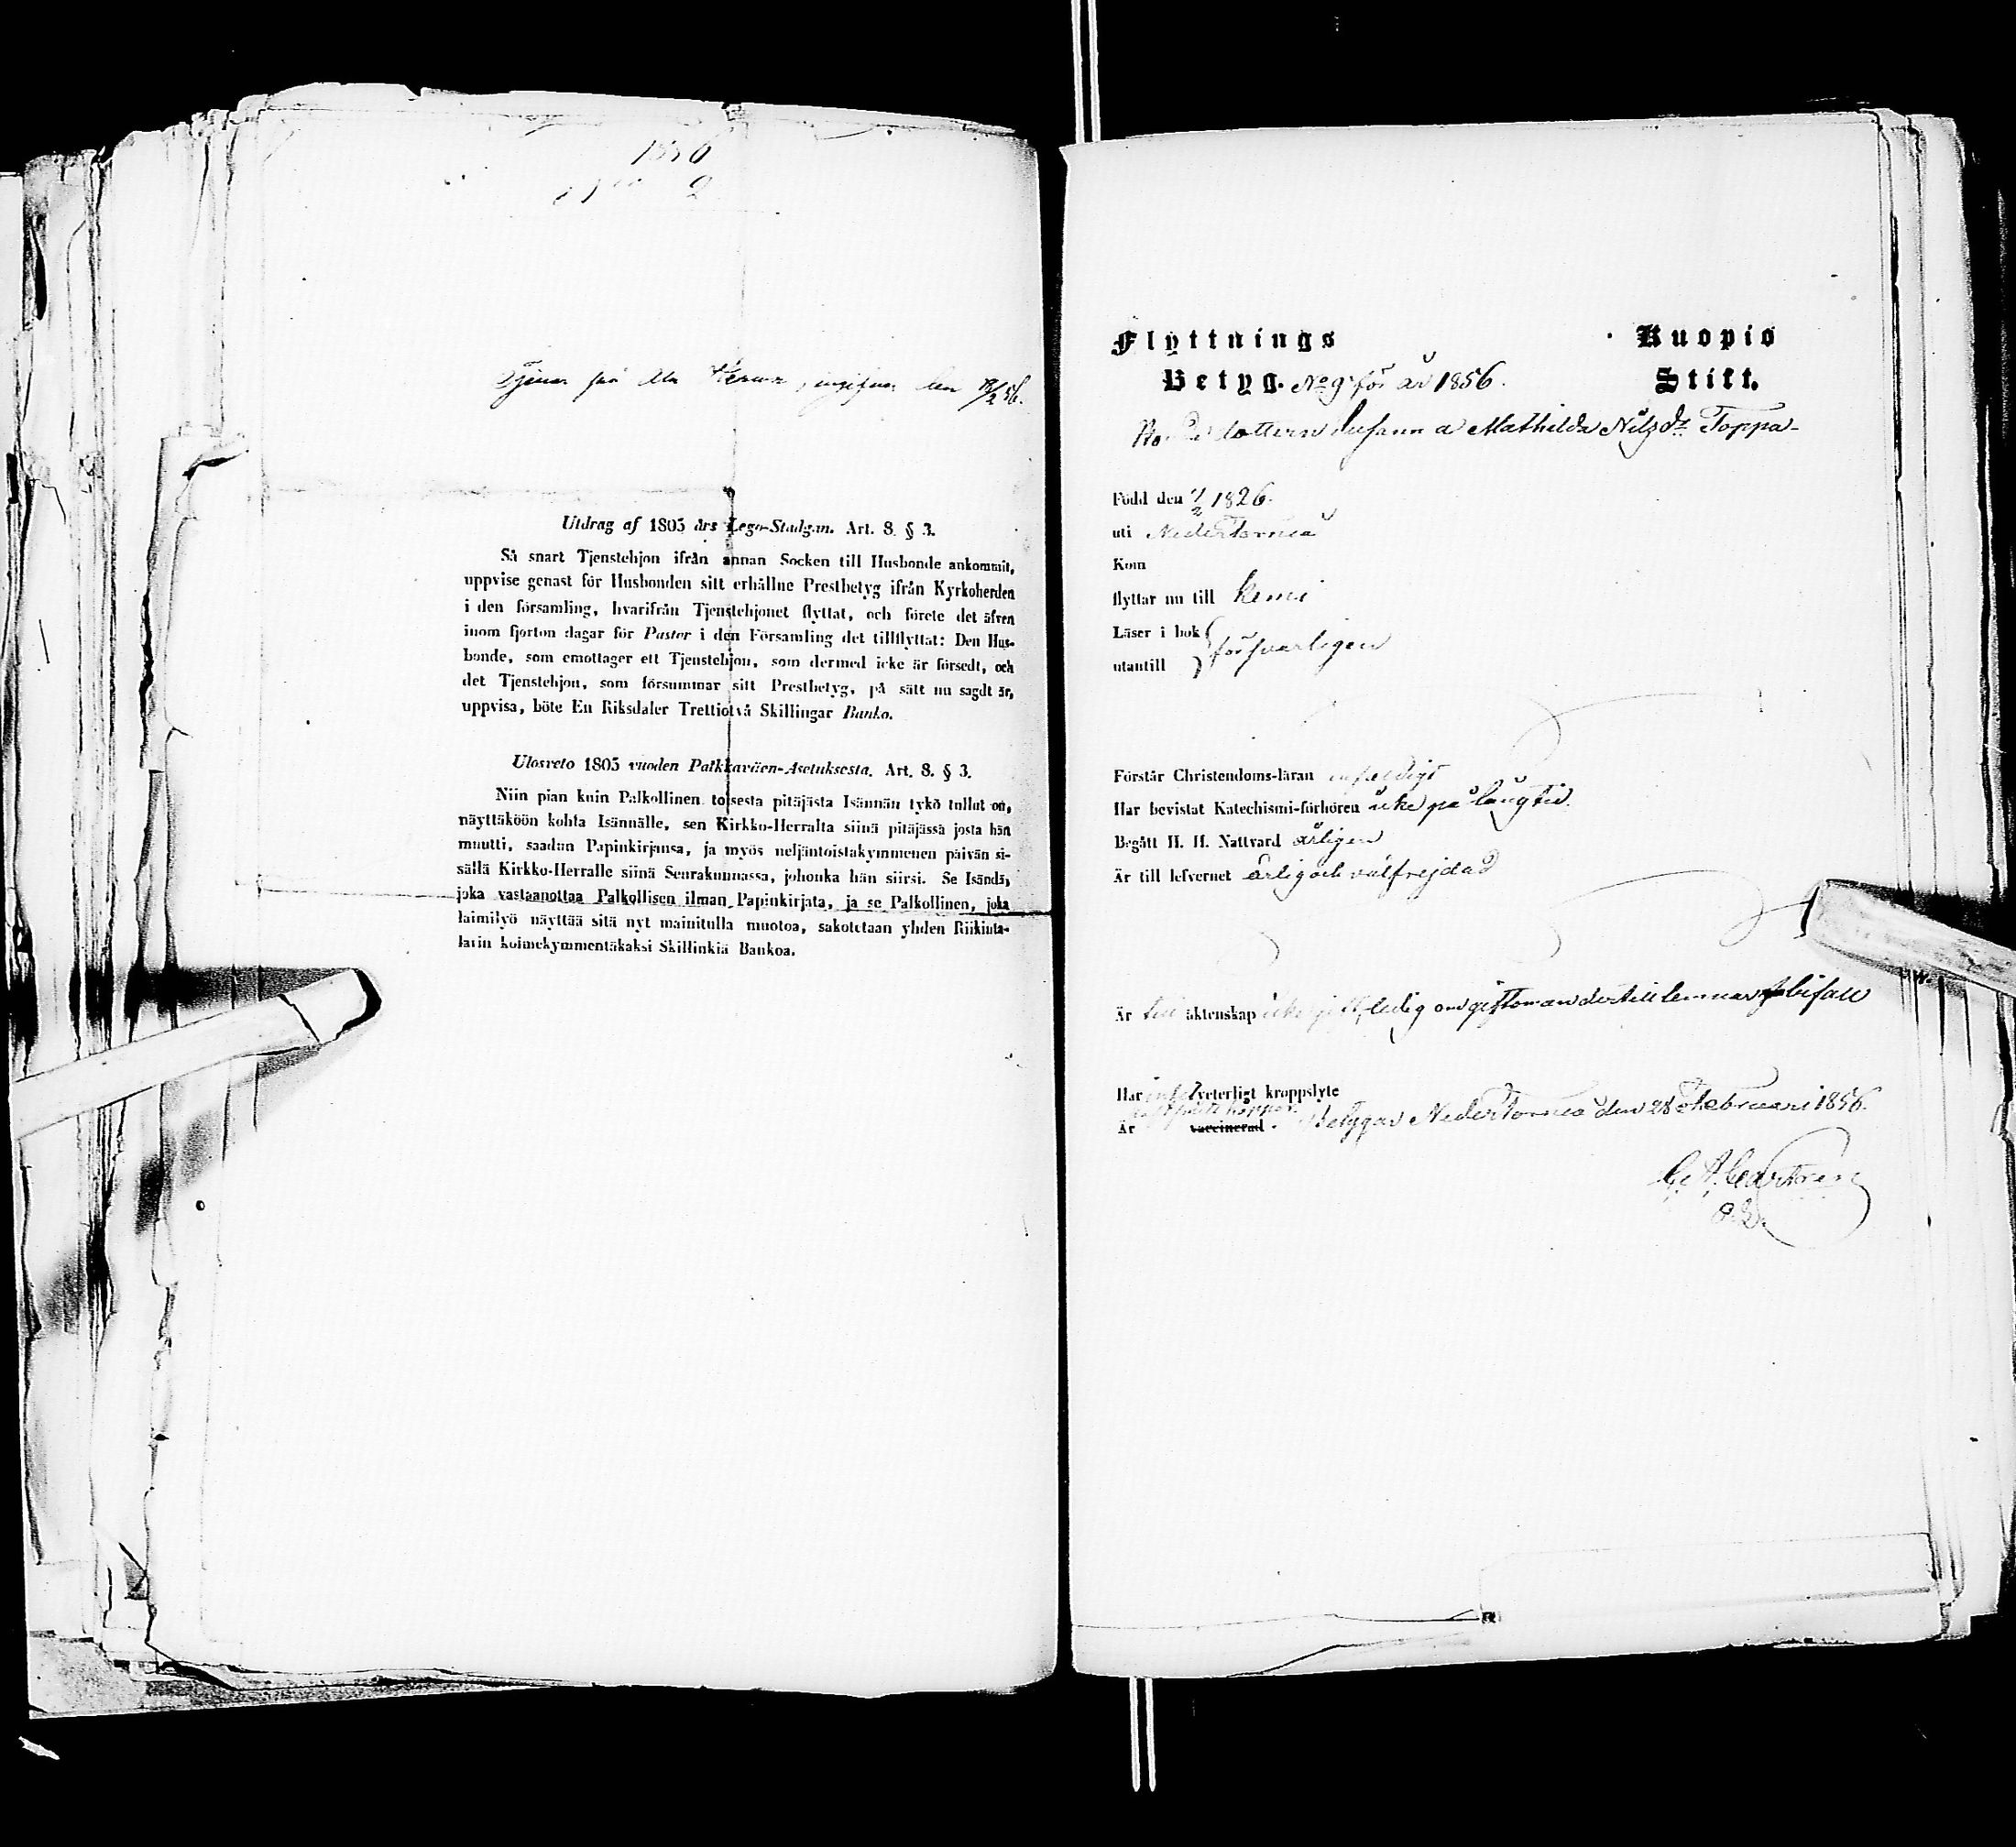 1856
2
Tjenar på Ala , ingifven den
Utdrag af 1805 års Lego-Stadgan. Art. 8. § 3.
Så snart Tjenstehjon ifrån annan Socken till Husbonde ankommit,
uppvise genast för Husbonden sitt erhållne Prestbetyg ifrån Kyrkoherden
i den församling, hvarifrån Tjenstehjonet flyttat, och förete det äfven
inom fjorton dagar för Pastor i den Församling det tillflyttat: Den Hus-
bonde, som emottager ett Tjenstehjon, som dermed icke är försedt, och
det Tjenstehjon, som försummar sitt Prestbetyg, på sätt nu sagdt är,
uppvisa, böte En Riksdaler Trettiotvå Skillingar Banko.
Ulosveto 1805 vuoden Palkkaväen-Asetuksesta. Art. 8. § 3.
Niin pian kuin Palkollinen toisesta pitäjästä Isännän tykö tullut on,
näyttäköön kohta Isännälle, sen Kirkko-Herralta siinä pitäjässä josta hän
muutti, saadun Papinkirjansa, ja myös neljäntoistakymmenen päivän si-
sällä Kirkko-Herralle siinä Seurakunnassa, johonka hän siirsi. Se Isändä,
joka vastaanottaa Palkollisen ilman Papinkirjata, ja se Palkollinen, joka
laimilyö näyttää sitä nyt mainitulla muotoa, sakotetaan yhden Riikinta-
larin kolmekymmentäkaksi Skillinkiä Bankoa.
Flyttnings Kuopio
Betyg. No 9 för år 1856. Stift.
dottern Susanna Mathilda Nilsdr Toppa-
Född den 1/2 1826.
uti Neder Torneå
Kom
flyttar nu till Kemi
Läser i bok
försvarligen
utantill
Förstår Christendoms-läran enfeldigt
Har bevistat Katechismi-förhören icke på lång tid.
Begått H. H. Nattvard årligen
Är till lefvernet ärlig och välfrejdad
Är till äktenskap icke gift, ledig om giftoman dertill lemnar bifall
Har intet veterligt kroppslyte
haft koppor.
Är vaccinerad. Betygar Neder Torneå den 28 Februari 1856.